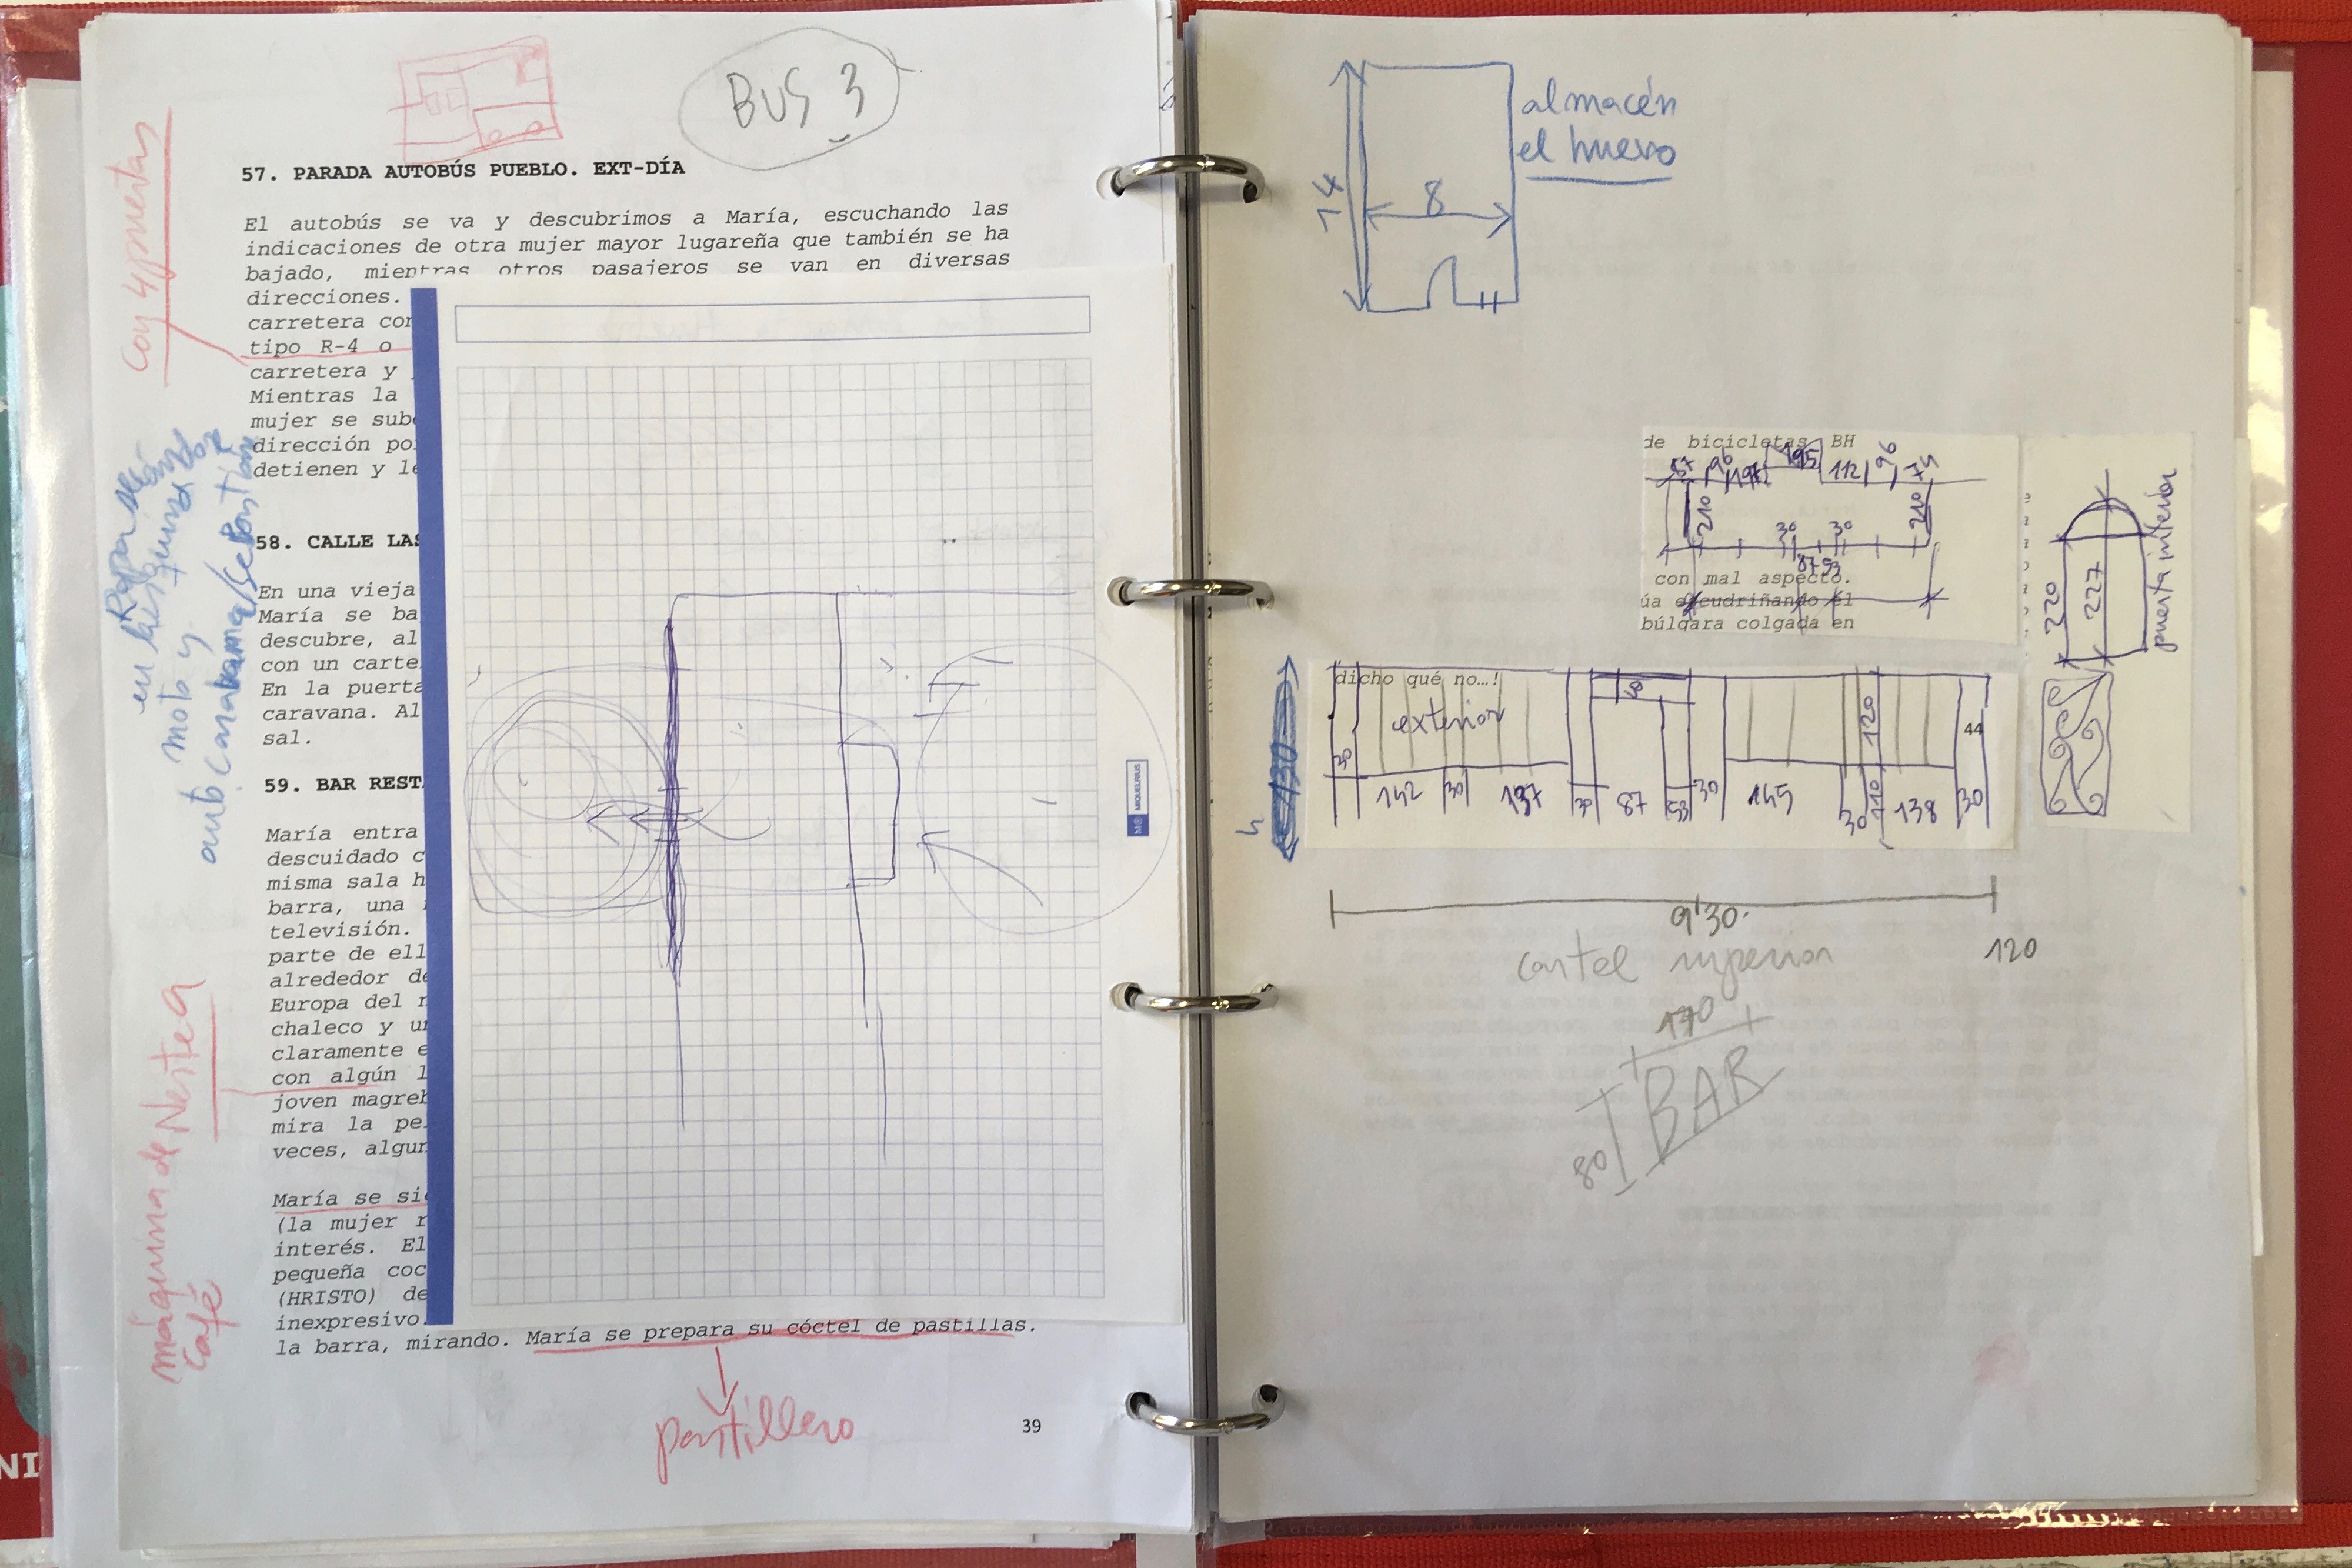 BUS 3
57. PARADA AUTOBÚS PUEBLO. EXT-DÍA
El autobús se va y descubrimos a María, escuchando las
indicaciones de otra mujer mayor lugareña que también se ha
bajado, mientras otros pasajeros se van en diversas
direcciones.
carretera con
tipo R-4 o
carretera y
Mientras la
mujer se sube
dirección po
detienen y le
58. CALLE LAS
En una vieja
María se ba
descubre, al
con un carte
En la puerta
caravana. Al
sal.
59. BAR REST
María entra
descuidado c
misma sala h
barra, una
televisión.
parte de ell
alrededor de
Europa del
chaleco y un
claramente e
con algún l
joven magreb
mira la pe
veces, algun
María se sie
(la mujer r
interés. El
pequeña coc
(HRISTO) de
inexpresivo.
la barra, mirando. María se prepara su cóctel de pastillas.
pastillero
39
con 4 puertas
en las
moto y
máquina de Nestea
café
MIQUELRIUS
almacén
el huevo
14
8
de bicicletas BH
57 96 197 195 112 96 74
210 30 30 210
87 93
con mal aspecto.
úa escudriñando el
búlgara colgada en
220 227 puerta interior
dicho qué no…!
exterior
120
44
30
142 30 137 30 87 53 30 145 30 110 138 30
h 430
9'30
cartel superior 120
170
80 BAR
NI